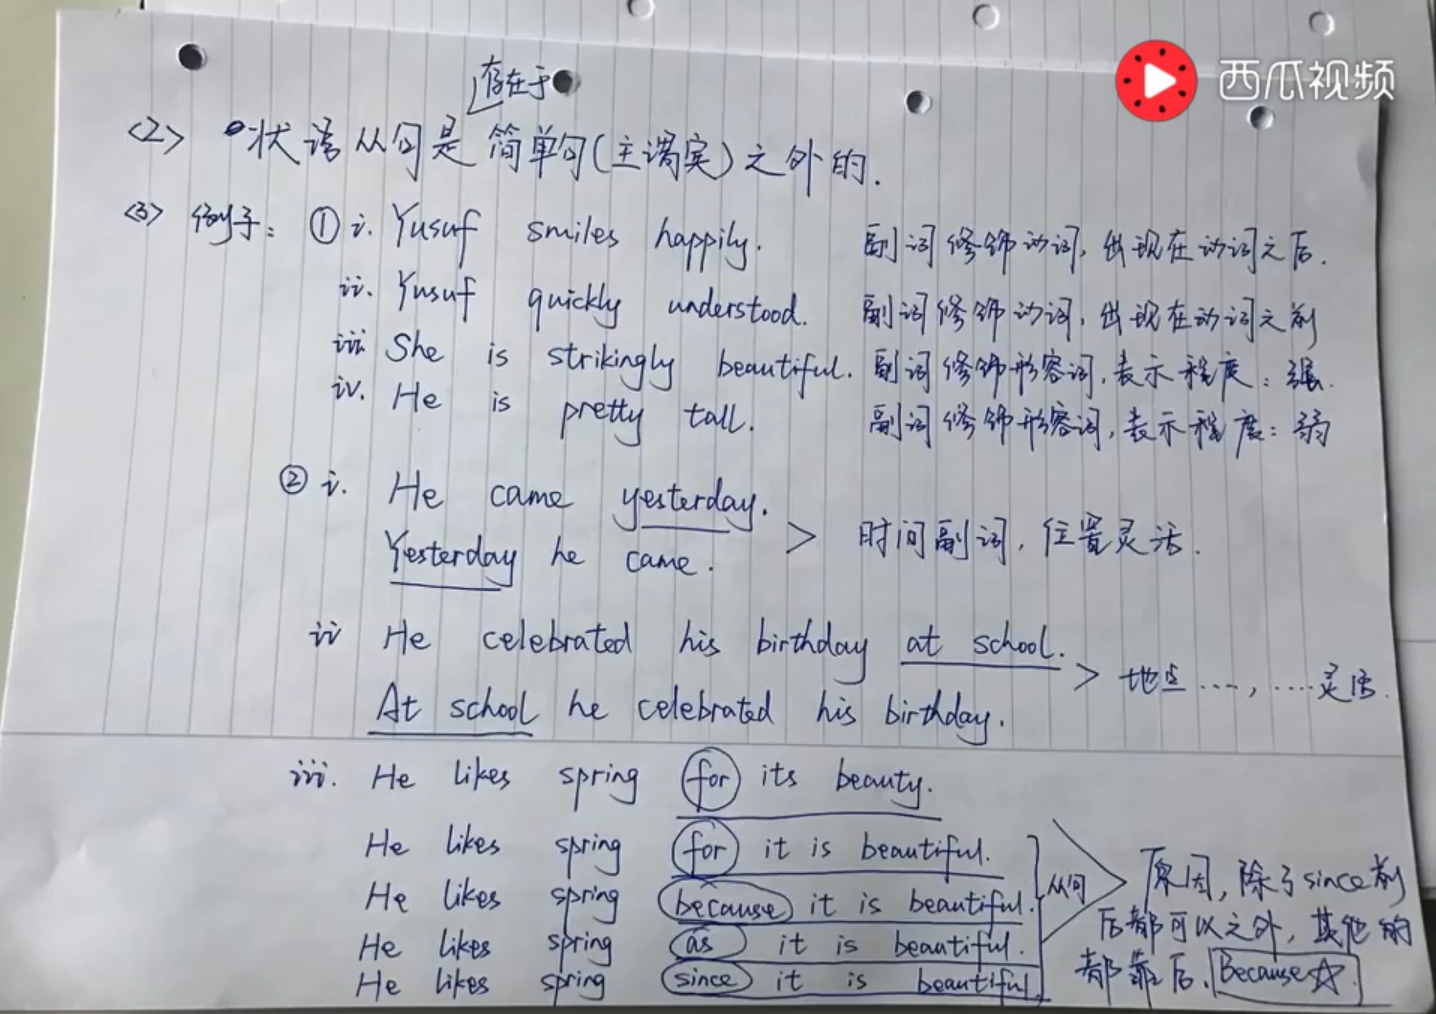 西瓜视频
存在于
<2> 状语从句是简单句(主谓宾)之外的.
<3> 例子: ① i. Yusuf smiles happily. 副词修饰动词, 出现在动词之后.
ii. Yusuf quickly understood. 副词修饰动词, 出现在动词之前
iii She is strikingly beautiful. 副词修饰形容词, 表示程度: 强.
iv. He is pretty tall. 副词修饰形容词, 表示程度: 弱
② i. He came yesterday.
Yesterday he came. > 时间副词, 位置灵活.
ii He celebrated his birthday at school.
At school he celebrated his birthday. > 地点 ...., .... 灵活.
iii. He likes spring for its beauty.
He likes spring for it is beautiful.
He likes spring because it is beautiful.
He likes spring as it is beautiful.
He likes spring since it is beautiful.
从句
原因, 除了since前
后都可以之外, 其他的
都靠后. Because☆.